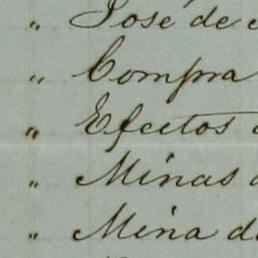 „ José de
„ Compra
„ Efectos
„ Minas
„ Mina de